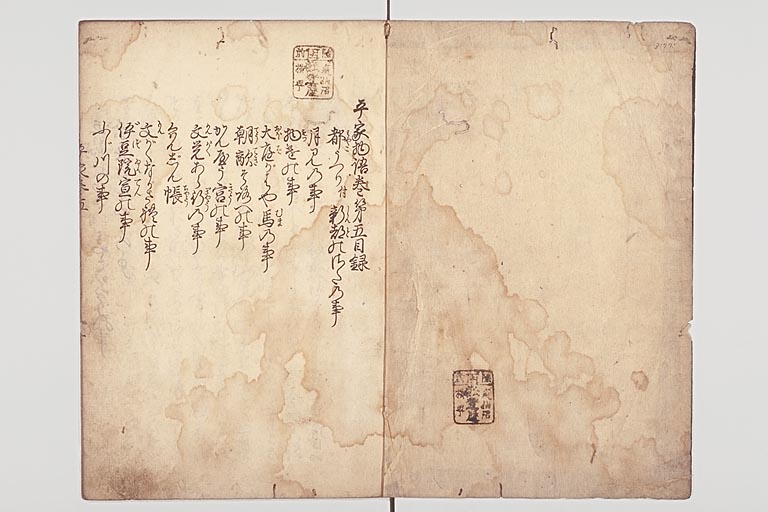 平家物語巻第五目録
都うつり付新都のさたの事
月見の事
物怪の事
大庭がはや馬の事
朝敵そろへの事
かんやう宮の事
文覚あら行の事
くわんじん帳
文がくながされの事
伊豆院宣の事
ふじ川の事